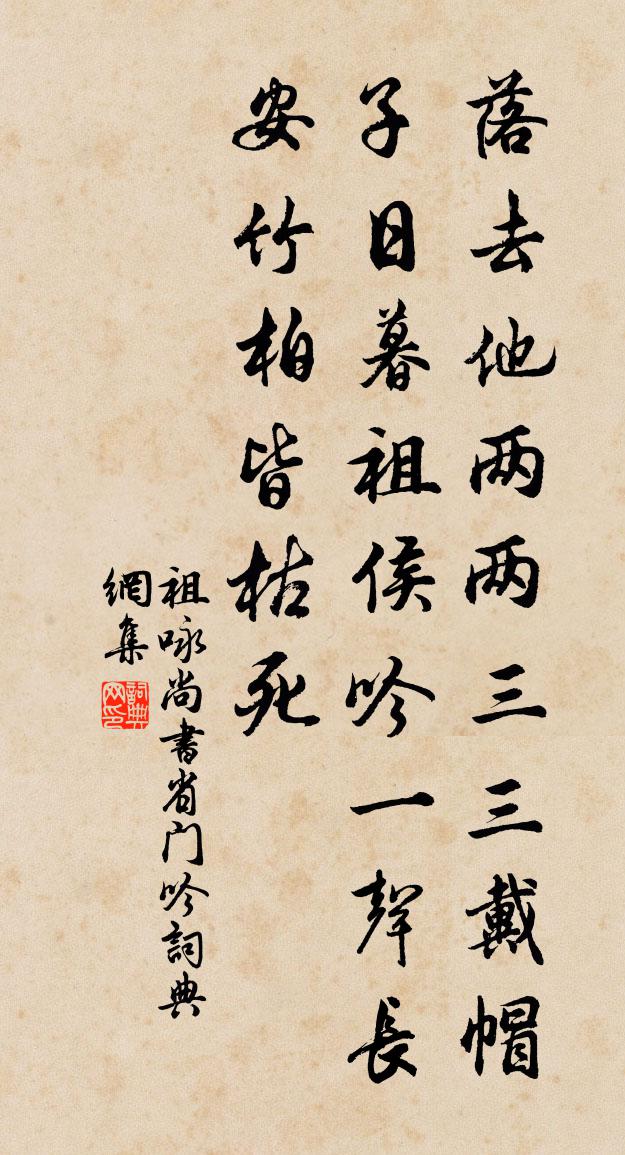 落去他两两三三戴帽
子日暮祖侯吟一聲長
安竹柏皆枯死
祖咏尚書省门吟詞典
網集
詞典网印